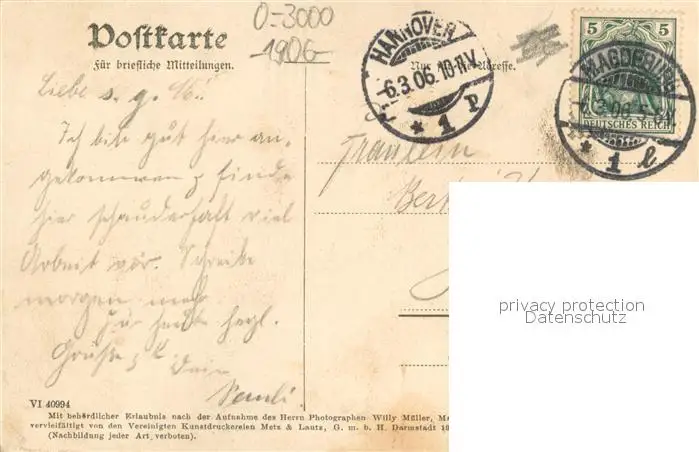 O-3000
1906
Postkarte
Für briefliche Mitteilungen.
Nur für die Adresse.
HANNOVER
-6.3.06.10-11V.
* 1 P
5 5
DEUTSCHES REICH
MAGDEBURG
* 1 l
Liebe
Ich bin gut hier an-
gekommen & finde
hier schauderhaft viel
Arbeit vor. Schreibe
morgen mehr
Für heute herzl.
Grüße
Dein
Fräulein
privacy protection
Datenschutz
VI 40994
Mit behördlicher Erlaubnis nach der Aufnahme des Herrn Photographen Willy Müller,
vervielfältigt von den Vereinigten Kunstdruckereien Metz & Lautz, G. m. b. H. Darmstadt
(Nachbildung jeder Art verboten).